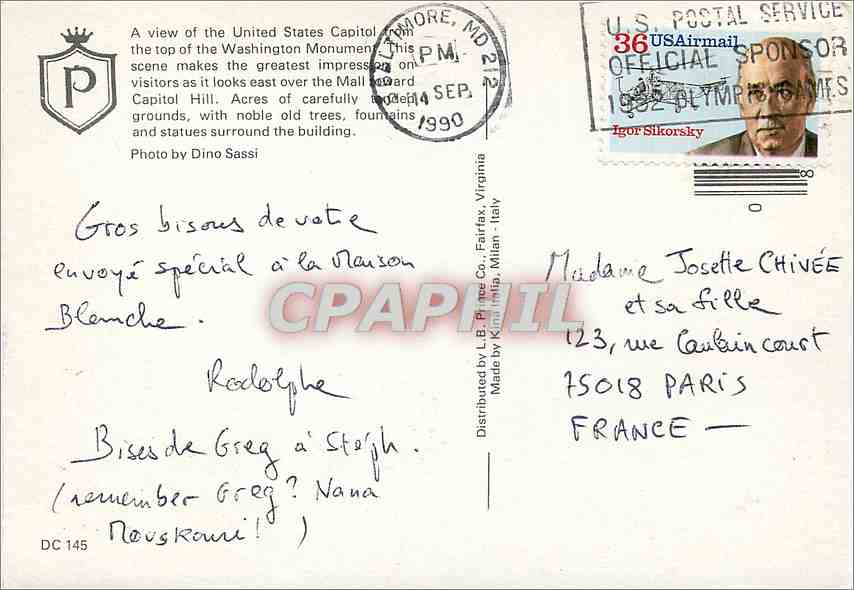 A view of the United States Capitol from
the top of the Washington Monument. This
scene makes the greatest impression on
visitors as it looks east over the Mall toward
Capitol Hill. Acres of carefully tended
grounds, with noble old trees, fountains
and statues surround the building.
Photo by Dino Sassi
P
BALTIMORE, MD 212
PM
14 SEP
1990
U.S. POSTAL SERVICE
OFFICIAL SPONSOR
1992 OLYMPIC GAMES
36 USAirmail
Igor Sikorsky
8
0
Gros bisous de votre
envoyé spécial à la Maison
Blanche.
Rodolphe
Bises de Greg à Stéph.
(remember Greg? Nana
Mouskouri! )
DC 145
Distributed by L.B. Prince Co., Fairfax, Virginia
Made by Kina Italia, Milan - Italy
Madame Josette CHIVÉE
et sa fille
123, rue Caulaincourt
75018 PARIS
FRANCE —
CPAPHIL